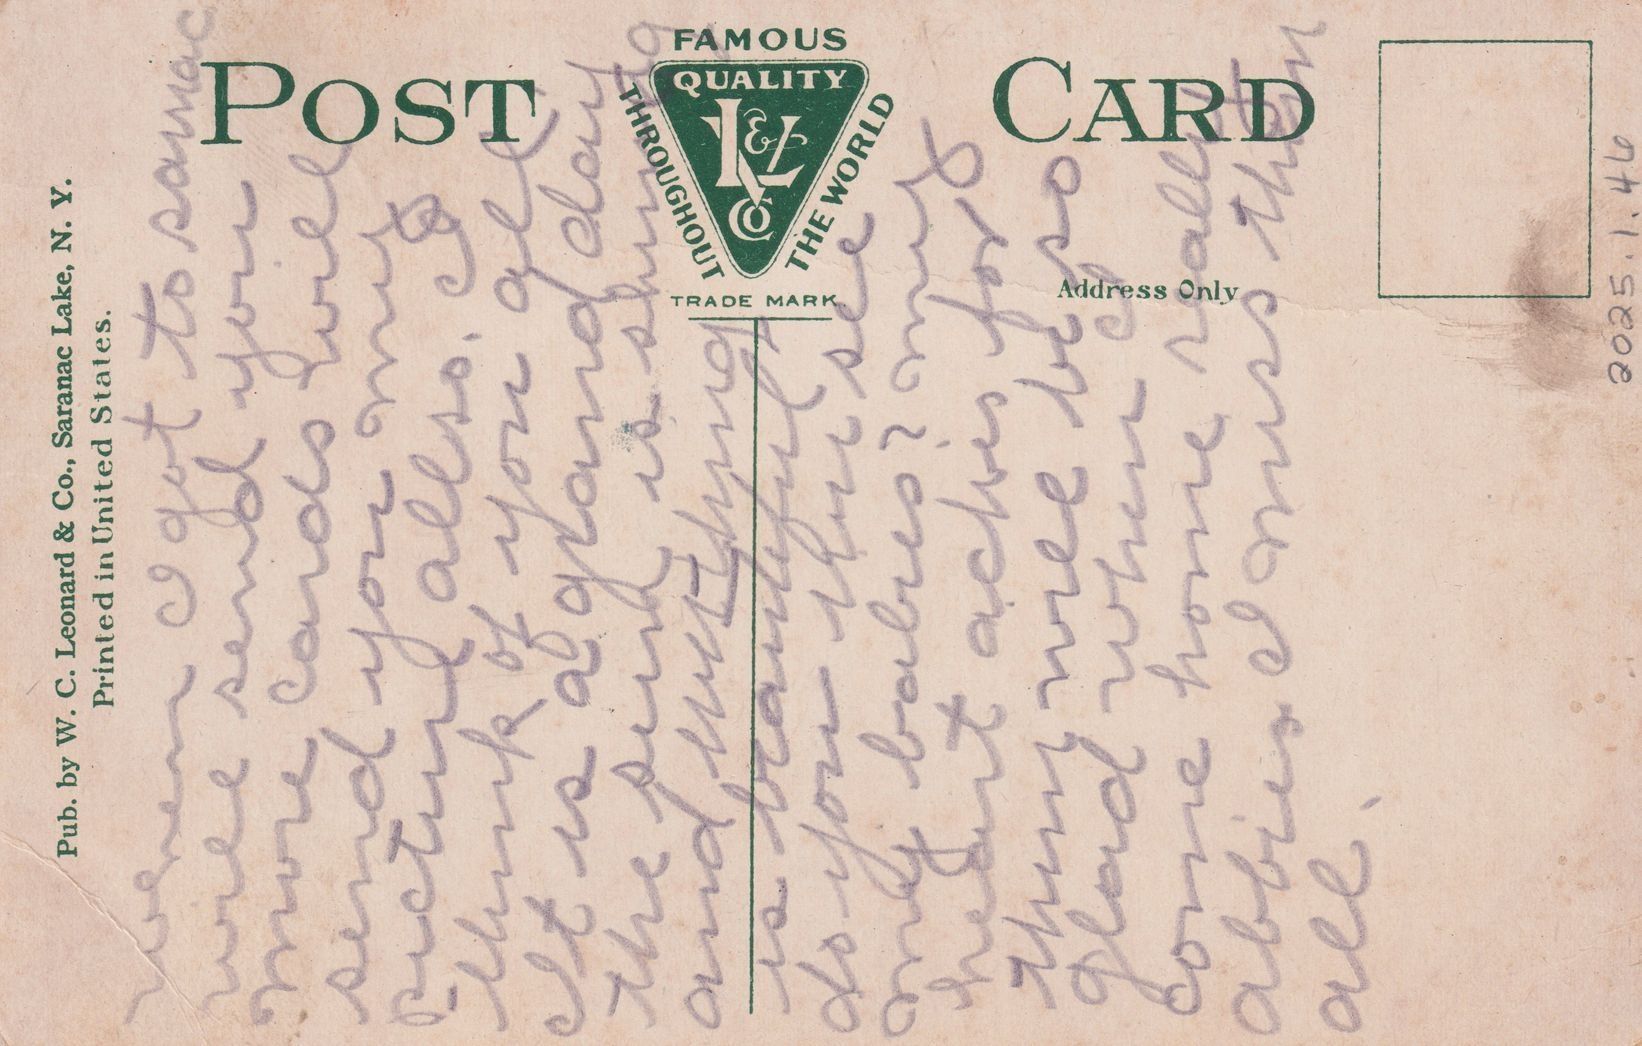 POST CARD
FAMOUS
QUALITY
THROUGHOUT THE WORLD
L & Co
TRADE MARK
Address Only
Pub. by W. C. Leonard & Co., Saranac Lake, N. Y.
Printed in United States.
2025.1.46
when I got to saranac
will send you
more cards will
send you my
picture also. I
think of you all
It is a grand day
the sun is shining
and every thing
is beautiful
do you ever see
my babies? my
heart aches for
them will be so
glad when I
come home sally
abbie I miss them
all.